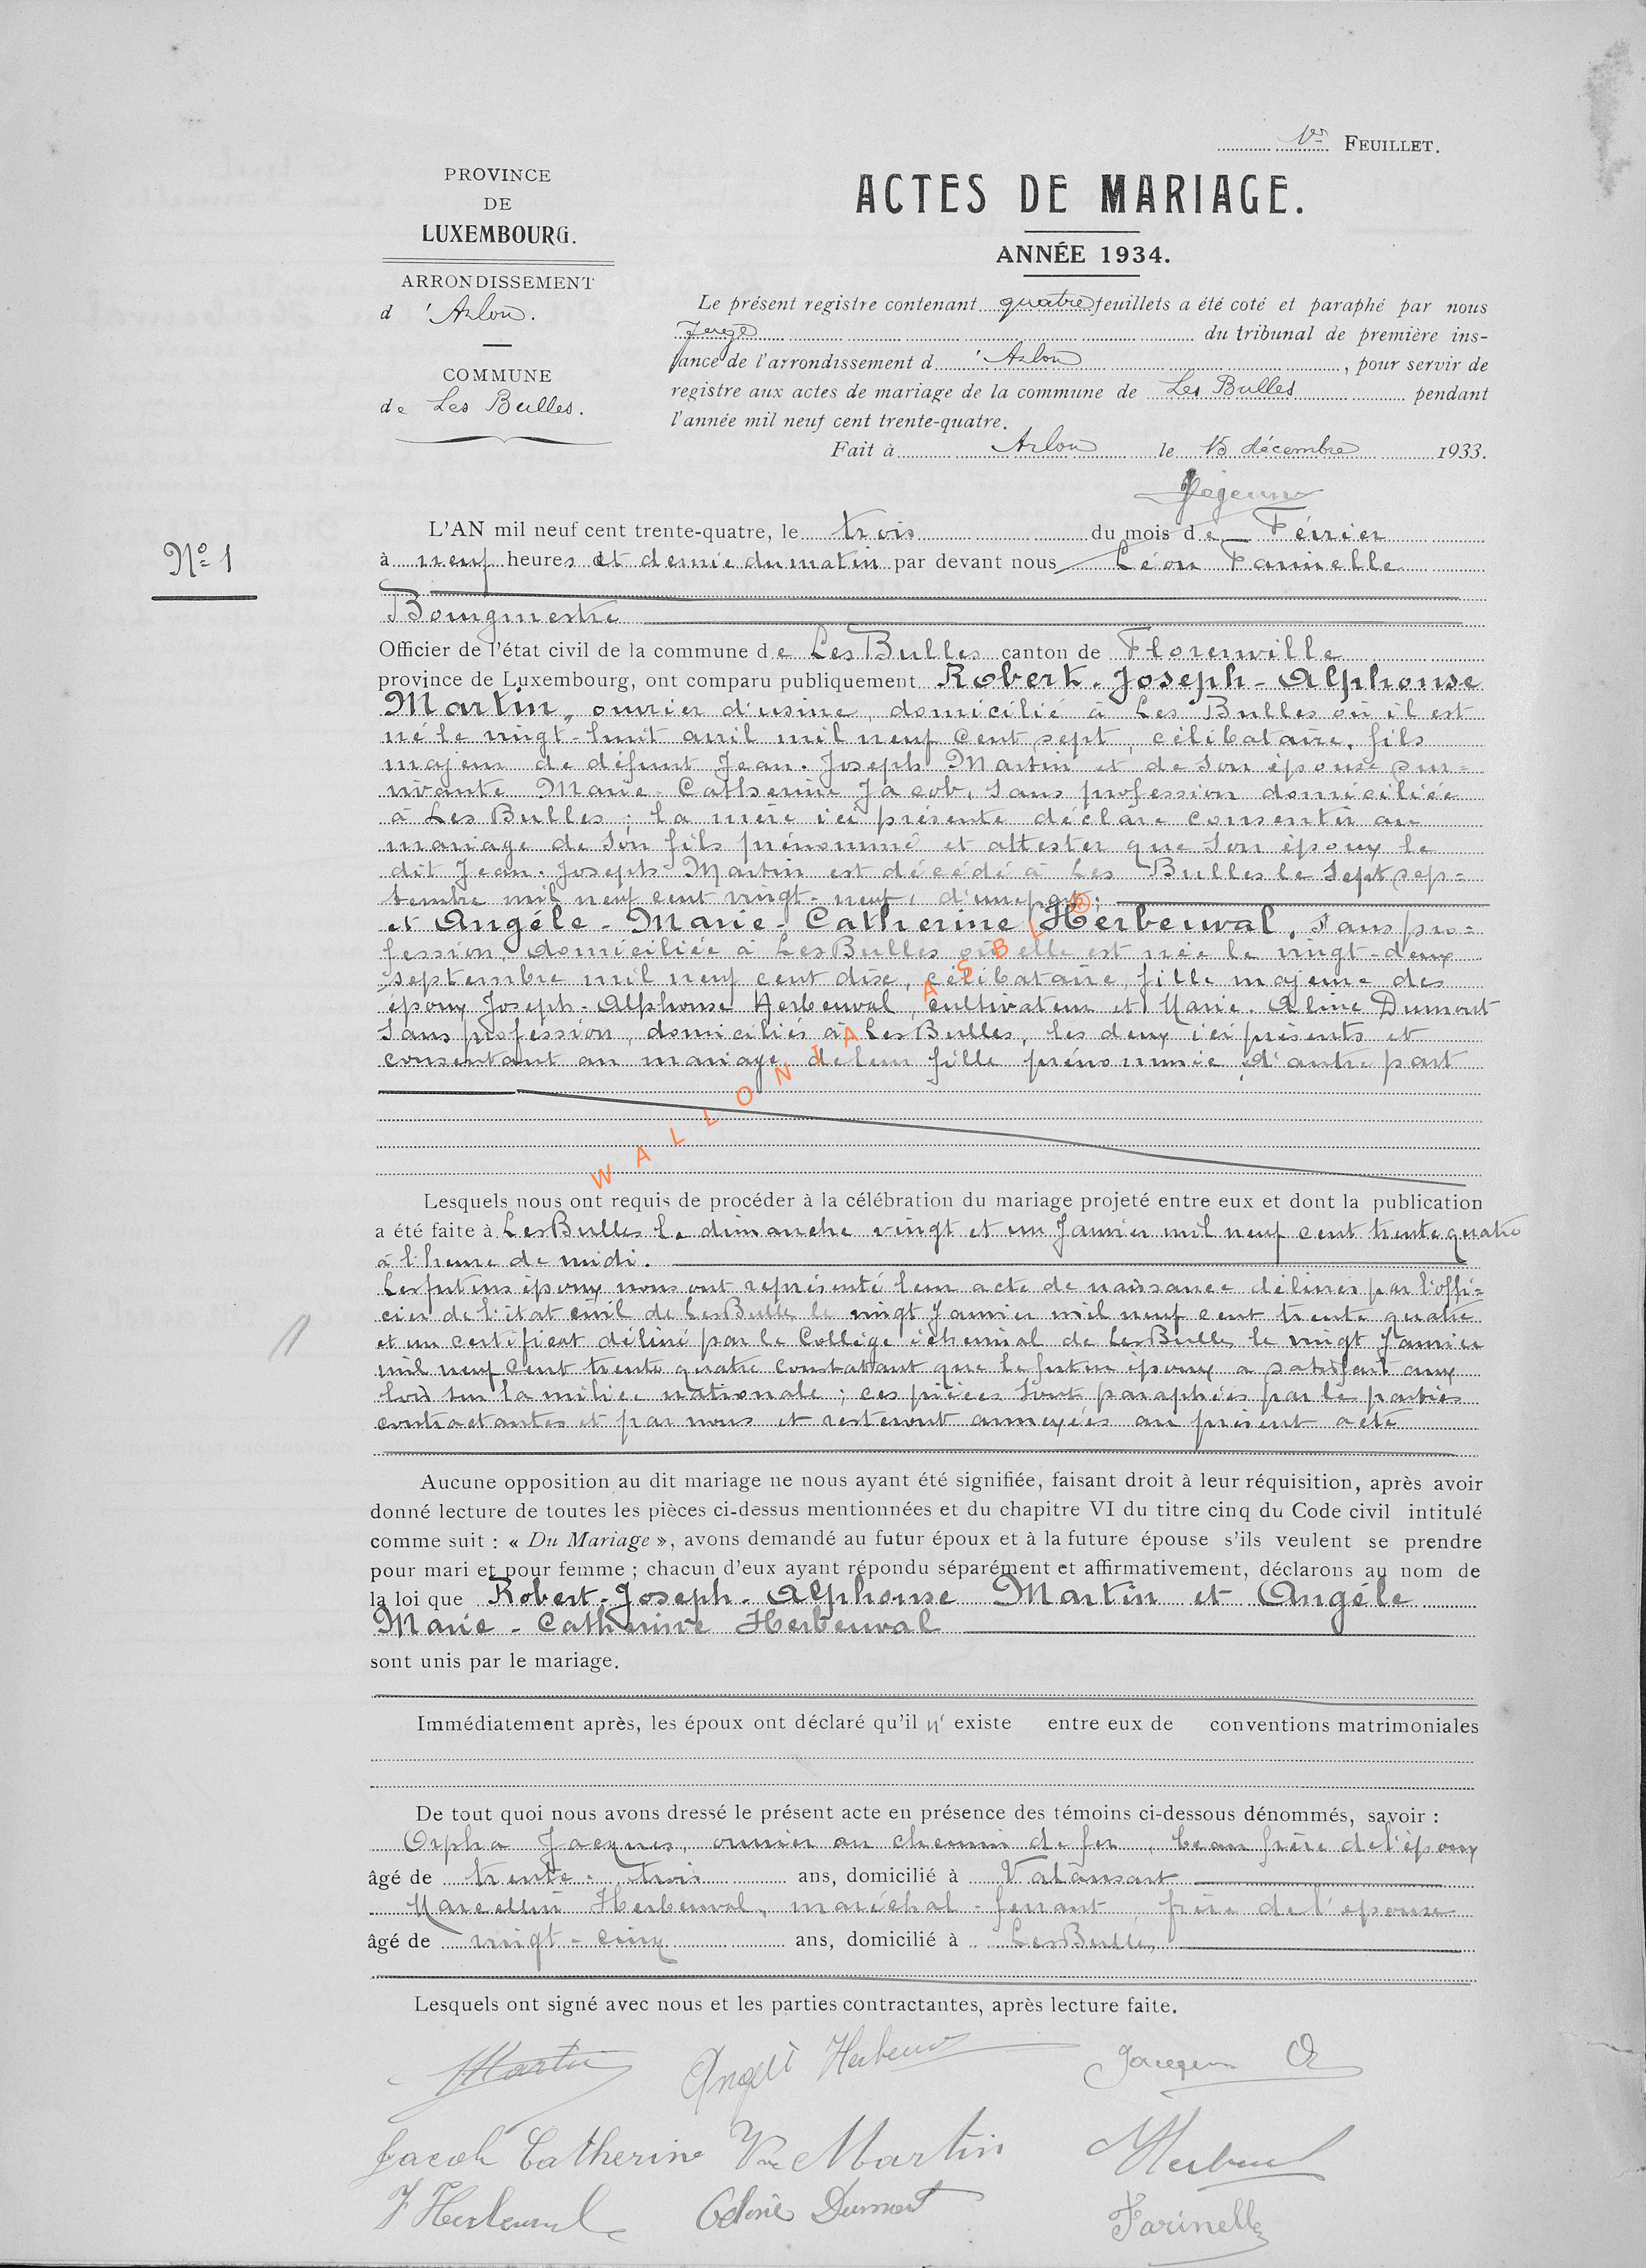 1er FEUILLET.
PROVINCE
DE
LUXEMBOURG.
ARRONDISSEMENT
d'Arlon.
COMMUNE
de Les Bulles.
ACTES DE MARIAGE.
ANNÉE 1934.
Le présent registre contenant quatre feuillets a été coté et paraphé par nous
Juge du tribunal de première ins-
tance de l'arrondissement d'Arlon, pour servir de
registre aux actes de mariage de la commune de Les Bulles pendant
l'année mil neuf cent trente-quatre.
Fait à Arlon le 15 décembre 1933.
N° 1
L'AN mil neuf cent trente-quatre, le trois du mois de Février
à neuf heures et demie du matin par devant nous Léon Farinelle
Bourgmestre
Officier de l'état civil de la commune de Les Bulles canton de Florenville
province de Luxembourg, ont comparu publiquement Robert-Joseph-Alphonse
Martin, ouvrier d'usine, domicilié à Les Bulles où il est
né le vingt-huit avril mil neuf cent sept, célibataire, fils
majeur de défunt Jean-Joseph Martin et de son épouse sur=
vivante Marie-Catherine Jacob, sans profession domiciliée
à Les Bulles; la mère ici présente déclare consentir au
mariage de son fils prénommé et attester que son époux le
dit Jean-Joseph Martin est décédé à Les Bulles le sept sep=
tembre mil neuf cent vingt-neuf, d'une part;
et Angéle-Marie-Catherine Herbeuval, sans pro=
fession, domiciliée à Les Bulles où elle est née le vingt-deux
septembre mil neuf cent dix, célibataire, fille majeure des
époux Joseph-Alphonse Herbeuval, cultivateur et Marie-Aline Dumont
sans profession, domiciliés à Les Bulles, les deux ici présents et
consentant au mariage de leur fille prénommée, d'autre part
WALLONIA ASBL ®
Lesquels nous ont requis de procéder à la célébration du mariage projeté entre eux et dont la publication
a été faite à Les Bulles le dimanche vingt et un Janvier mil neuf cent trente quatre
à l'heure de midi.
Les futurs époux nous ont représenté leur acte de naissance délivrés par l'offi=
cier de l'état civil de Les Bulles le vingt Janvier mil neuf cent trente quatre
et un certificat délivré par le Collège échevinal de Les Bulles le vingt Janvier
mil neuf cent trente quatre constatant que le futur époux a satisfait aux
lois sur la milice nationale; ces pièces sont paraphées par les parties
contractantes et par nous et resteront annexées au présent acte
Aucune opposition au dit mariage ne nous ayant été signifiée, faisant droit à leur réquisition, après avoir
donné lecture de toutes les pièces ci-dessus mentionnées et du chapitre VI du titre cinq du Code civil intitulé
comme suit : « Du Mariage », avons demandé au futur époux et à la future épouse s'ils veulent se prendre
pour mari et pour femme ; chacun d'eux ayant répondu séparément et affirmativement, déclarons au nom de
la loi que Robert-Joseph-Alphonse Martin et Angéle
Marie-Catherine Herbeuval
sont unis par le mariage.
Immédiatement après, les époux ont déclaré qu'il n'existe entre eux de conventions matrimoniales
De tout quoi nous avons dressé le présent acte en présence des témoins ci-dessous dénommés, savoir :
Orpha Jacques, ouvrier au chemin de fer, beau frère de l'époux
âgé de trente-trois ans, domicilié à Valansart
Marcellin Herbeuval, maréchal-ferrant, frère de l'épouse
âgé de vingt-cinq ans, domicilié à Les Bulles
Lesquels ont signé avec nous et les parties contractantes, après lecture faite.
Martin Angèle Herbeuval Jacques O
Jacob Catherine Vve Martin M Herbeuval
J Herbeuval Dumont Farinelle